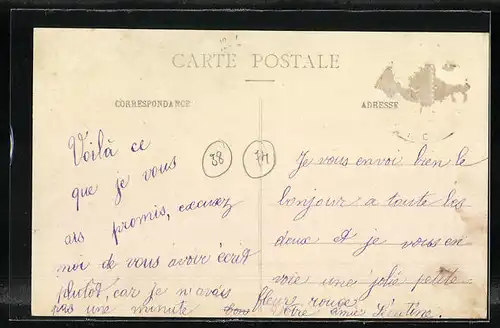 CARTE POSTALE
CORRESPONDANCE
ADRESSE
Voilà ce
que je vous
ais promis, excusez
moi de vous avoir écrit
plutôt, car je n'avais
pas une minute
38
74
Je vous envoi bien le
bonjour a toute les
deux et je vous en
voie une jolie petite
fleurs rouge
Votre amie Léontine.